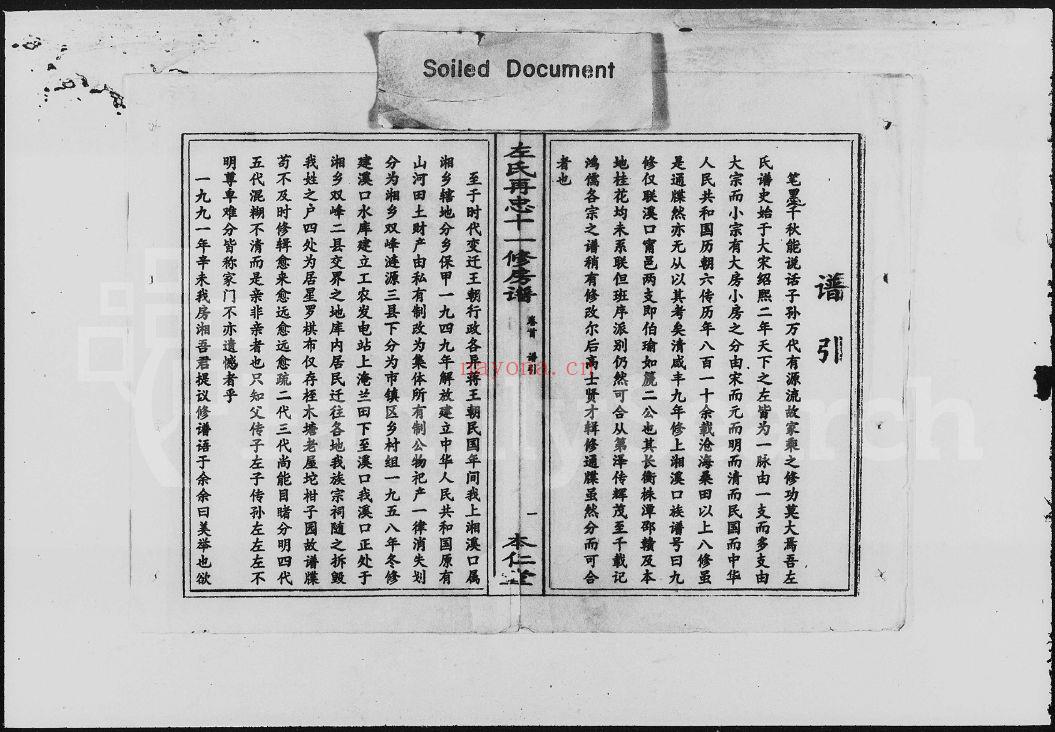 Soiled Document
谱引
笔墨千秋能说话子孙万代有源流故家乘之修功莫大焉吾左
氏谱史始于大宋绍熙二年天下之左皆为一脉由一支而多支由
大宗而小宗有大房小房之分由宋而元而明而清而民国而中华
人民共和国历朝六传历年八百一十余载沧海桑田以上八修虽
是通牒然亦无从以其考矣清咸丰九年修上湘溪口族谱号曰九
修仅联溪口甯邑两支即伯瑜如篪二公也其长衡株潭邵赣及本
地桂花均未系联但班序派别仍然可合从第泽传辉茂至千载记
鸿儒各宗之谱稍有修改尔后高士贤才辑修通牒虽然分而可合
者也
左氏再忠十一修房谱
卷首 谱引
一
本仁堂
至于时代变迁王朝行政各异将王朝民国年间我上湘溪口属
湘乡辖地分乡保甲一九四九年解放建立中华人民共和国原有
山河田土财产由私有制改为集体所有制公物祀产一律消失划
分为湘乡双峰涟源三县下分为市镇区乡村组一九五八年冬修
建溪口水库建立工农发电站上淹兰田下至溪口我溪口正处于
湘乡双峰二县交界之地库内居民迁往各地我族宗祠随之拆毁
我姓之户四处为居星罗棋布仅存桎木塘老屋坨柑子园故谱牒
苟不及时修辑愈来愈远愈远愈疏二代三代尚能目睹分明四代
五代混糊不清而是亲非亲者也只知父传子左子传孙左左左不
明尊卑难分皆称家门不亦遗憾者乎
一九九一年辛未我房湘吾君提议修谱语于余余曰美举也欲
nayona.cn
FamilySearch